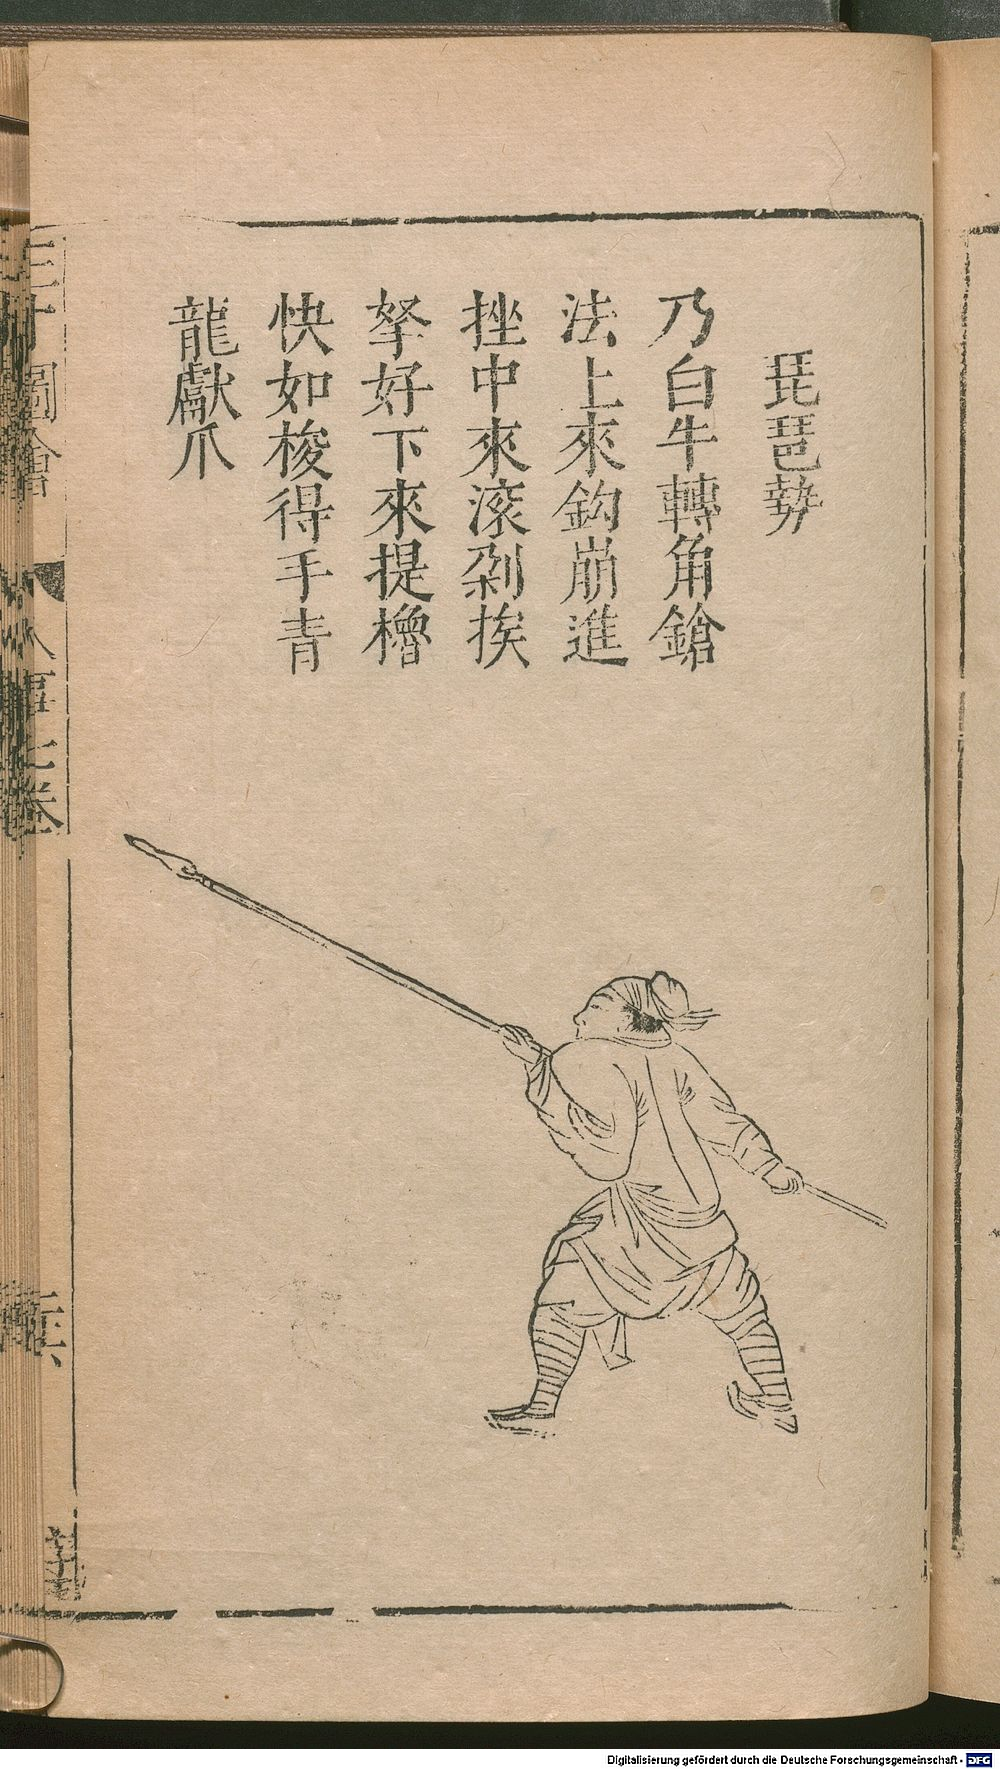 琵琶勢
乃白牛轉角鎗
法上來鈎崩進
挫中來滚剁挨
拏好下來提櫓
快如梭得手青
龍獻爪
三才圖會
人事七卷
Digitalisierung gefördert durch die Deutsche Forschungsgemeinschaft - DFG